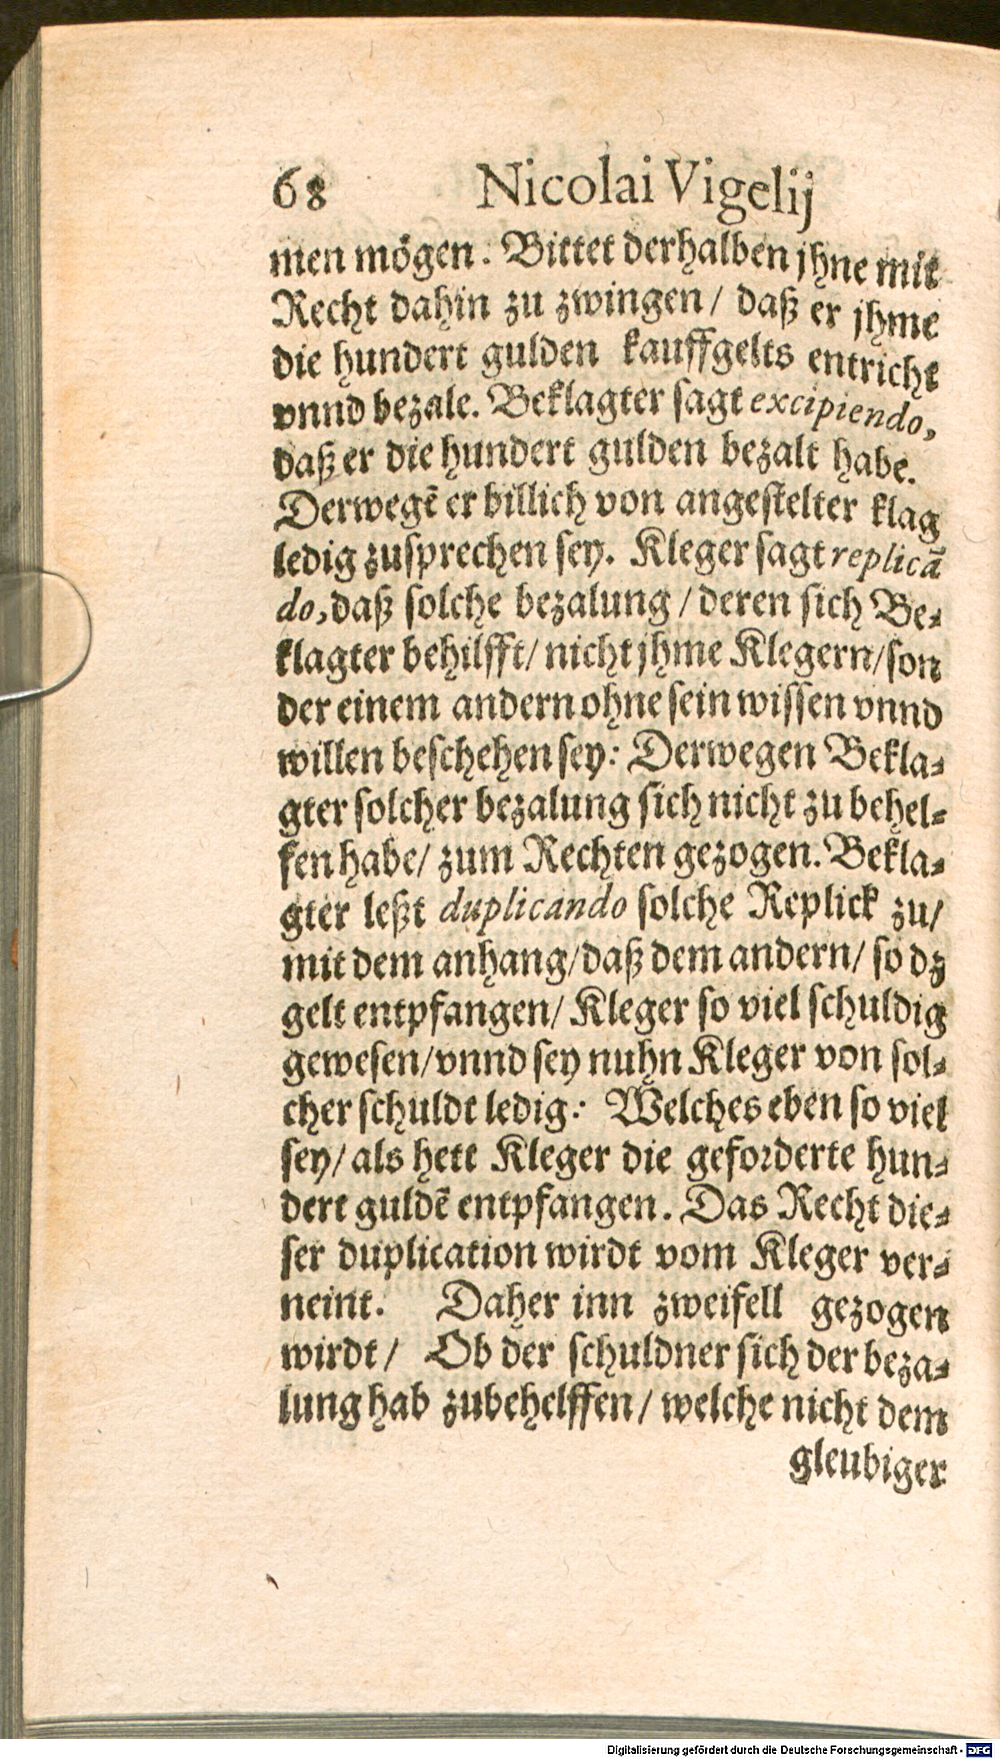 68 Nicolai Vigelij
men mögen. Bittet derhalben jhne mit
Recht dahin zu zwingen/ daß er jhme
die hundert gulden kauffgelts entricht
vnnd bezale. Beklagter sagt excipiendo,
daß er die hundert gulden bezalt habe.
Derwegē er billich von angestelter klag
ledig zusprechen sey. Kleger sagt replicā
do, daß solche bezalung / deren sich Be-
klagter behilfft/ nicht jhme Klegern/ son
der einem andern ohne sein wissen vnnd
willen beschehen sey: Derwegen Bekla-
gter solcher bezalung sich nicht zu behel-
fen habe/ zum Rechten gezogen. Bekla-
gter leßt duplicando solche Replick zu/
mit dem anhang/ daß dem andern/ so dz
gelt entpfangen/ Kleger so viel schuldig
gewesen/ vnnd sey nuhn Kleger von sol-
cher schuldt ledig: Welches eben so viel
sey/ als hett Kleger die geforderte hun-
dert guldē entpfangen. Das Recht die-
ser duplication wirdt vom Kleger ver-
neint. Daher inn zweifell gezogen
wirdt / Ob der schuldner sich der beza-
lung hab zubehelffen / welche nicht dem
gleubiger
Digitalisierung gefördert durch die Deutsche Forschungsgemeinschaft - DFG